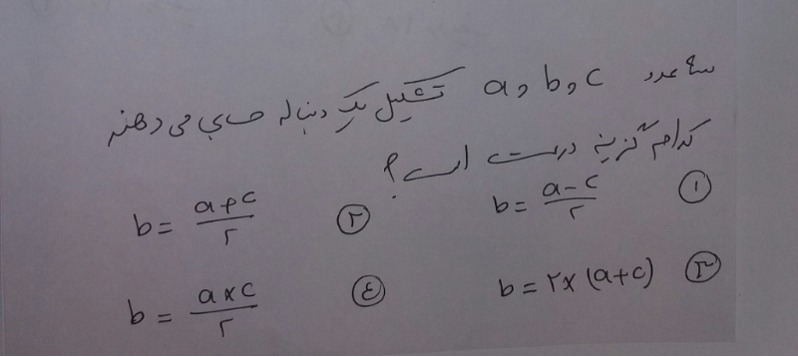 سه عدد a و b و c تشکیل یک دنباله حسابی می دهند
کدام گزینه درست است؟
① b = (a - c)/۲ ② b = (a + c)/۲
③ b = ۲ × (a + c) ④ b = (a × c)/۲